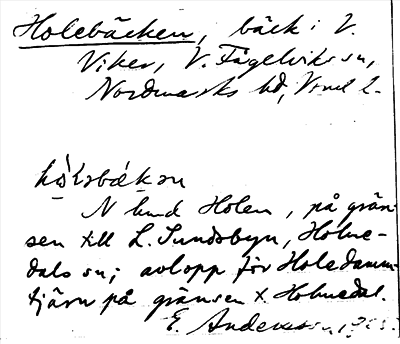 Holebäcken, bäck i V.
Viker, V. Fågelviks sn,
Nordmarks hd, Vrml l.
N hmd Holen, på grän-
sen till L. Sundsbyn, Holme-
dals sn; avlopp för Holedamm-
tjärn på gränsen t. Holmedal.
E. Andersson